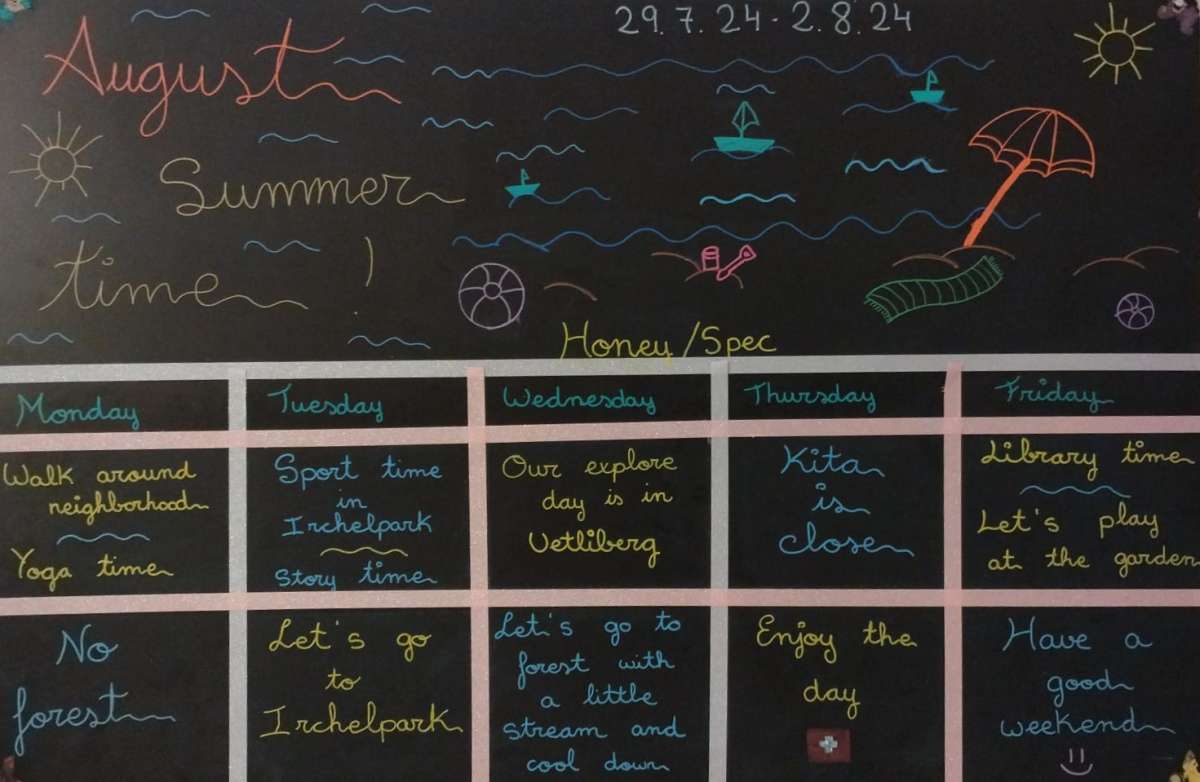 29.7.24 - 2.8.24
August
Summer
time !
Honey/Spec
Monday
Tuesday
Wednesday
Thursday
Friday
Walk around
neighborhood
Yoga time
Sport time
in
Irchelpark
Story time
Our explore
day is in
Uetliberg
Kita
is
close
Library time
Let's play
at the garden
No
forest
Let's go
to
Irchelpark
Let's go to
forest with
a little
stream and
cool down
Enjoy the
day
Have a
good
weekend